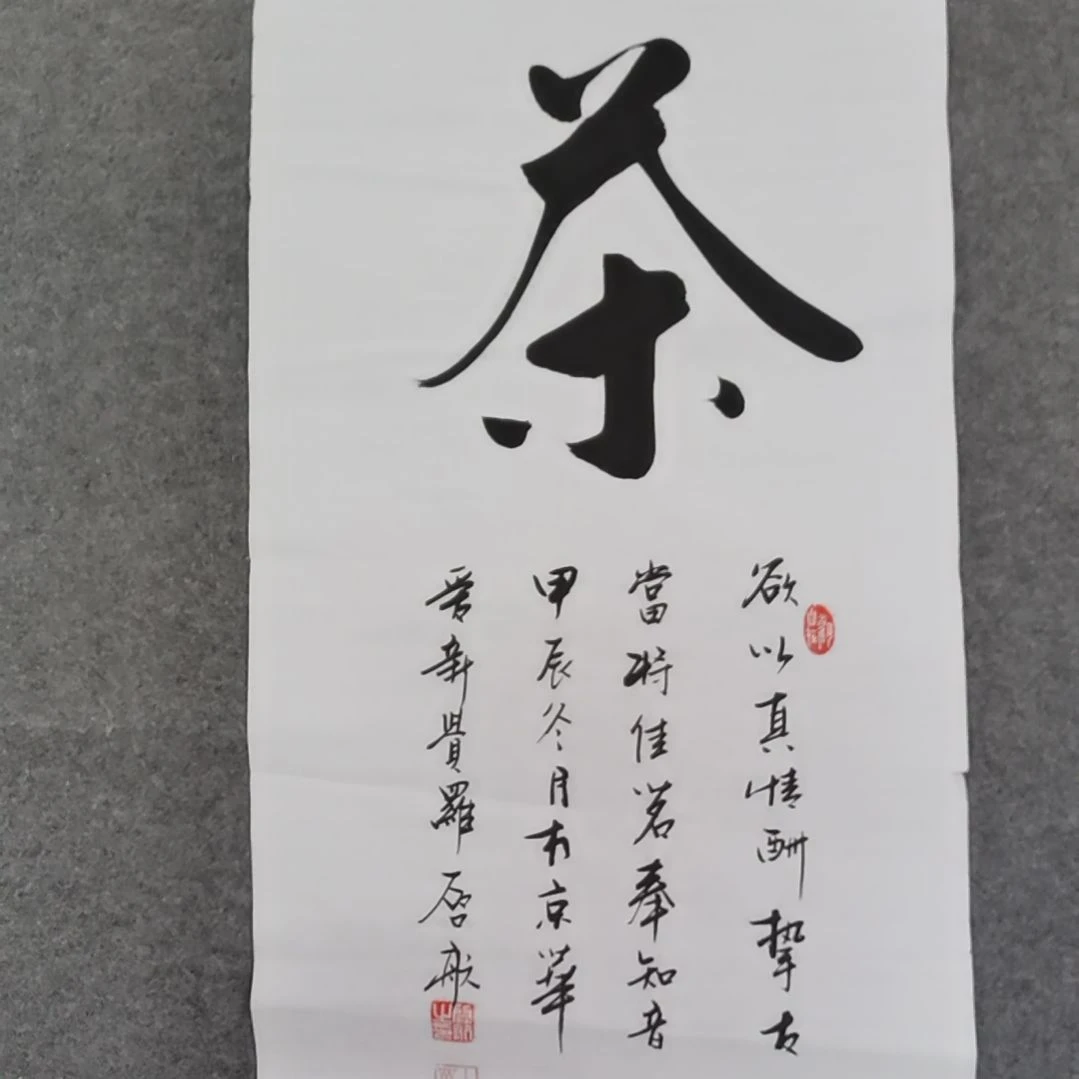 茶
欲以真情酬挚友
當将佳茗奉知音
甲辰冬月於京華
爱新覺羅啓航